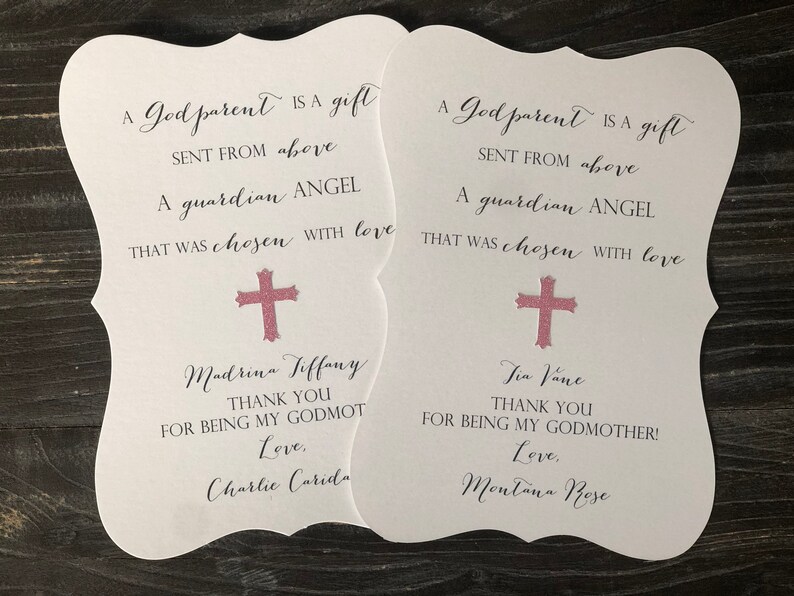 A Godparent IS A gift
SENT FROM above
A guardian ANGEL
THAT WAS chosen WITH love
Madrina Tiffany
THANK YOU
FOR BEING MY GODMOT
Love,
Charlie Carida
A Godparent IS A gift
SENT FROM above
A guardian ANGEL
THAT WAS chosen WITH love
Tia Váne
THANK YOU
FOR BEING MY GODMOTHER!
Love,
Montana Rose